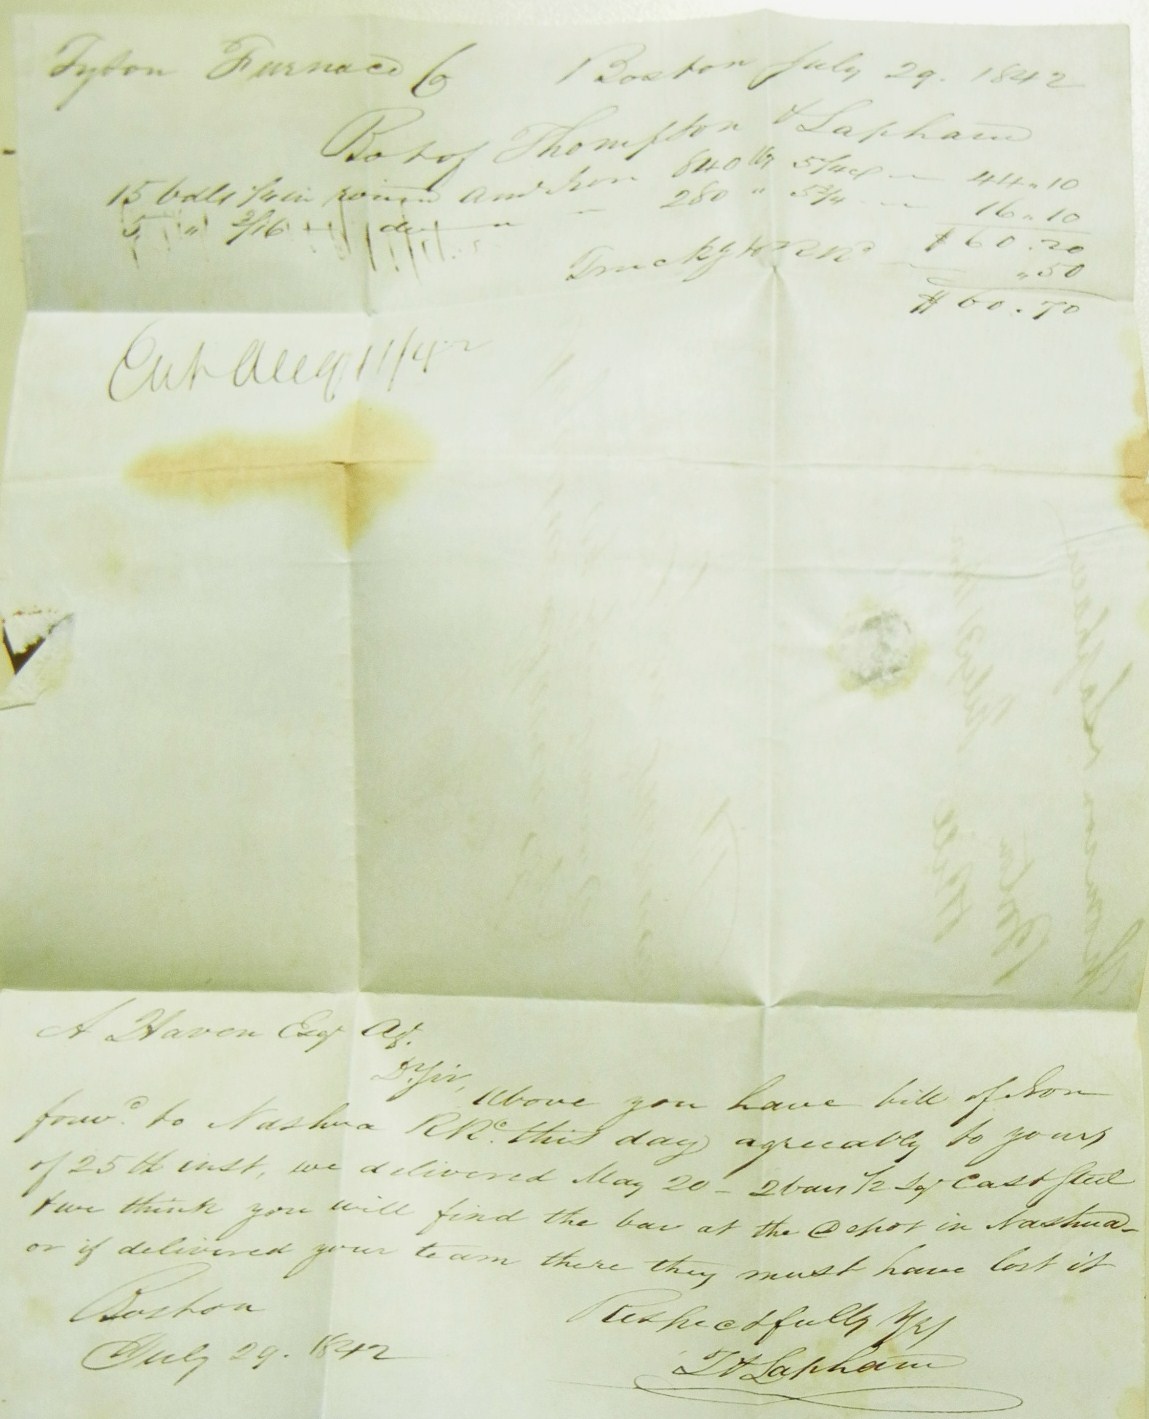 Tyson Furnace Co Boston July 29. 1842
Bot of Thompson & Lapham
15 bdls 1/4 in round Amn Iron 840 lbs 5 1/4 44.10
5 " 3/16 " do " - 280 " 5 3/4 16.10
$60.20
Truckg to R Rd .50
$60.70
Ent Aug 11/42
A Haven Esqr Ag.
Dr Sir,
Above you have bill of Iron
forwd. to Nashua RRd. this day agreeably to yours
of 25th inst, we delivered May 20 - 2 bars 1/2 Sqr Cast Steel
& we think you will find the bar at the depot in Nashua -
or if delivered your team there they must have lost it
Boston Respectfully Yrs
July 29. 1842 T & Lapham